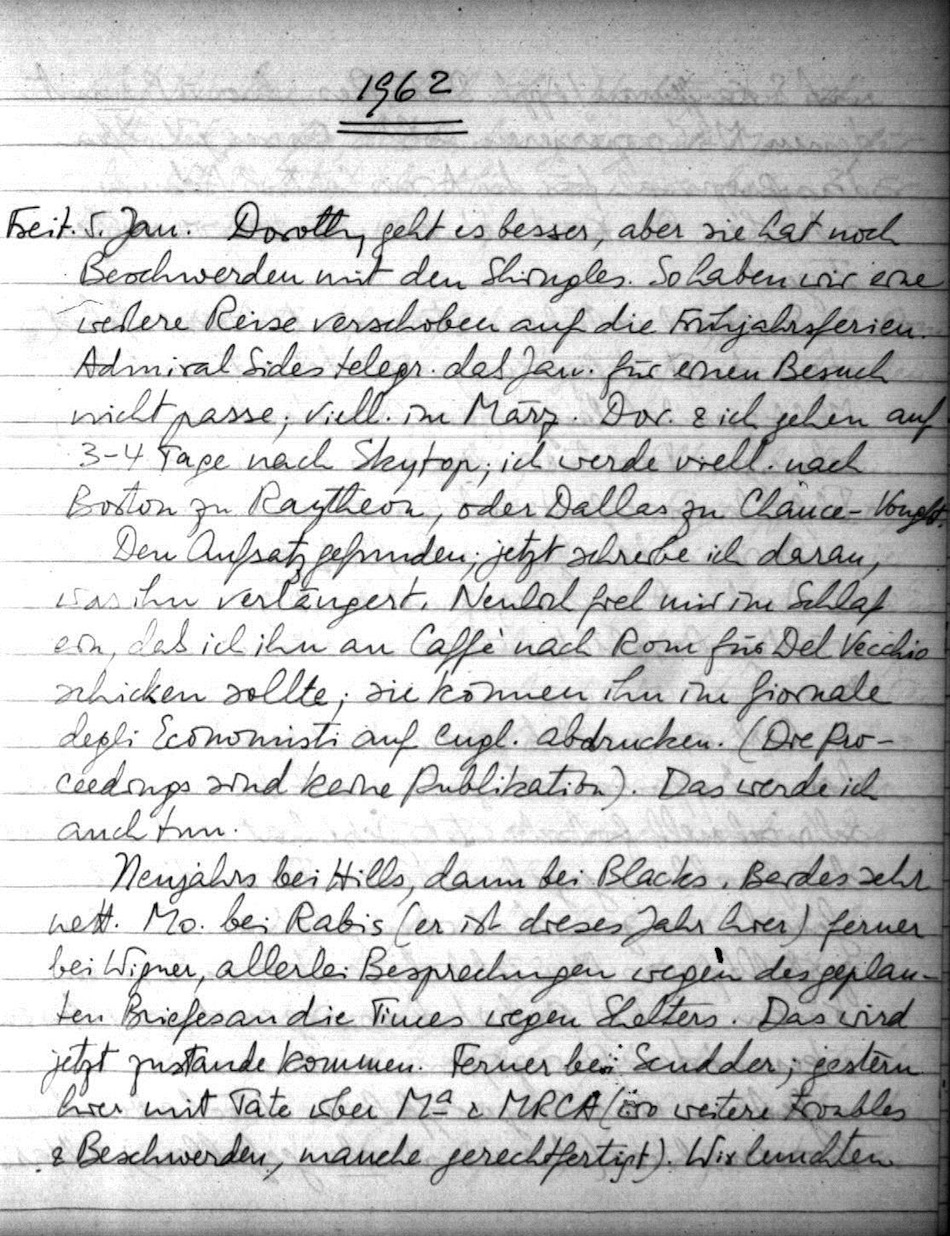 1962
Freit. 5. Jan. Dorothy geht es besser, aber sie hat noch
Beschwerden mit den Shingles. So haben wir eine
weitere Reise verschoben auf die Frühjahrsferien.
Admiral Sides telegr. daß Jan. für einen Besuch
nicht passe; viell. im März. Dor. & ich gehen auf
3-4 Tage nach Skytop; ich werde viell. nach
Boston zu Raytheon, oder Dallas zu Chance-Vought
Den Aufsatz gefunden; jetzt schreibe ich daran,
was ihn verlängert. Neulich fiel mir im Schlaf
ein, daß ich ihn an Caffè nach Rom für Del Vecchio
schicken sollte; sie können ihn im Giornale
degli Economisti auf engl. abdrucken. (Die Pro-
ceedings sind keine Publikation). Das werde ich
auch tun.
Neujahrs bei Hills, dann bei Blacks. Beides sehr
nett. Mo. bei Rabis (er ist dieses Jahr hier) ferner
bei Wigner, allerlei Besprechungen wegen des geplan-
ten Briefes an die Times wegen Shelters. Das wird
jetzt zustande kommen. Ferner bei Scudder; gestern
hier mit Tate über Ma & MRCA (wo weitere troubles
& Beschwerden, manche gerechtfertigt). Wir lunchten